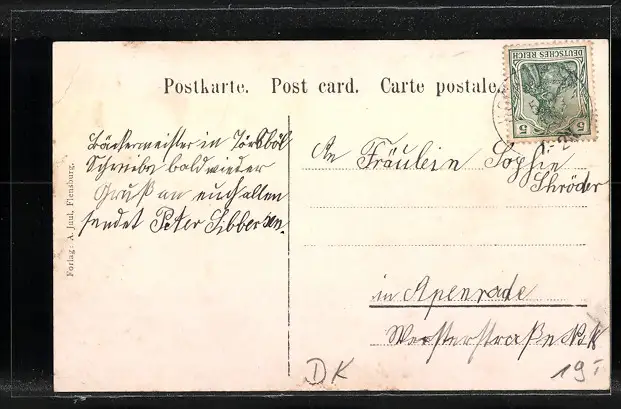 Postkarte. Post card. Carte postale.
DEUTSCHES REICH
5 5
Bäckermeister in Törsböl
Schreibe bald wieder
Gruß an euch allen
sendet Peter Ebbersen.
An Fräulein Sophie
Schröder
in Apenrade
Westerstraße
Forlag: A. Juul, Flensburg.
DK
19 I